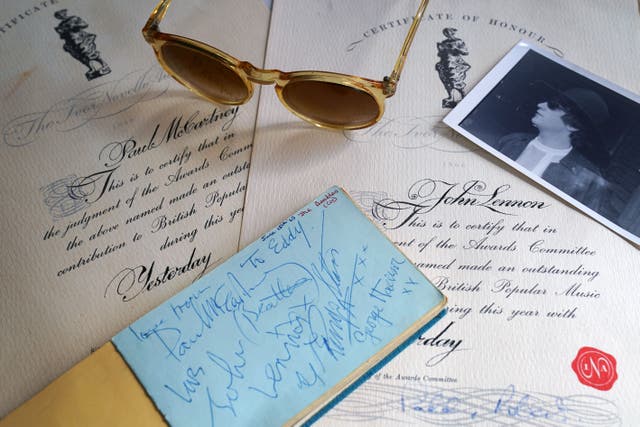 CERTIFICATE
The Ivor Novello
Paul McCartney
This is to certify that in
the judgment of the Awards Comm
the above named made an outsta
contribution to British Popular
during this year
Yesterday
CERTIFICATE OF HONOUR
John Lennon
This is to certify that in
ent of the Awards Committee
named made an outstanding
British Popular Music
ring this year with
day
of the Awards Committee
The Beatles
To Eddy.
Love from
Paul McCartney
(Beatles)
love
John
Lennon
xxx
George Harrison
xx
INA